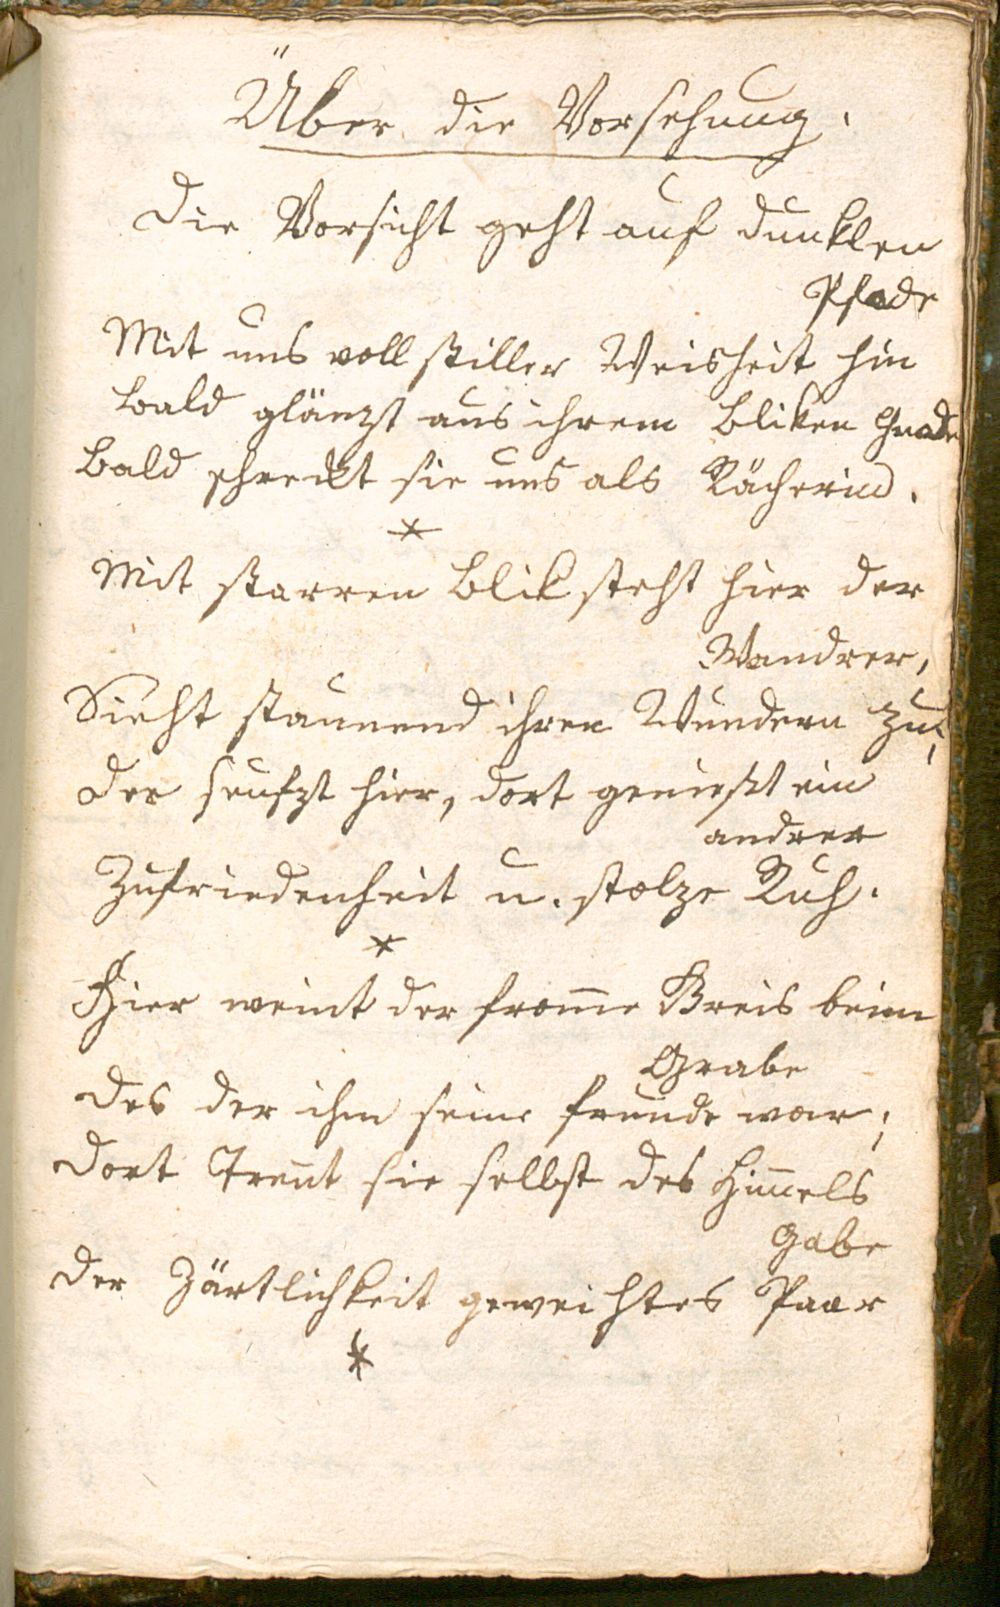 Über die Vorsehung.
Die Vorsicht geht auf dunklen
Pfade
Mit uns voll stiller Weisheit hin
Bald glänzt aus ihrem Bliken Gnade
Bald schrekt sie uns als Rächerin.
*
Mit starren Blik steht hier der
Wandrer,
Sieht staunend ihren Wundern zu,
Der seufzt hier, dort genießt ein
andrer
Zufriedenheit u. stolze Ruh.
*
Hier weint der from̅e Greis beim
Grabe
Des der ihm seine freunde war;
Dort Tren̅t sie selbst des Him̅els
Gabe
Der Zärtlichkeit geweihtes Paar
*